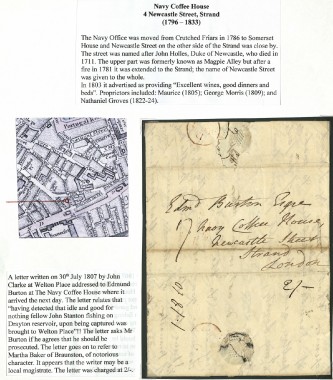 Navy Coffee House
4 Newcastle Street, Strand
(1796 – 1833)
The Navy Office was moved from Crutched Friars in 1786 to Somerset
House and Newcastle Street on the other side of the Strand was close by.
The street was named after John Holles, Duke of Newcastle, who died in
1711. The upper part was formerly known as Magpie Alley but after a
fire in 1781 it was extended to the Strand; the name of Newcastle Street
was given to the whole.
In 1803 it advertised as providing "Excellent wines, good dinners and
beds". Proprietors included: Maurice (1805); George Morris (1809); and
Nathaniel Groves (1822-24).
A letter written on 30th July 1807 by John
Clarke at Welton Place addressed to Edmund
Burton at The Navy Coffee House where it
arrived the next day. The letter relates that
"having detected that idle and good for
nothing fellow John Stanton fishing on
Drayton reservoir, upon being captured was
brought to Welton Place"! The letter asks Mr
Burton if he agrees that he should be
prosecuted. The letter goes on to refer to
Martha Baker of Braunston, of notorious
character. It appears that the writer may be a
local magistrate. The letter was charged at 2/-.
Edmd Burton Esqre
Navy Coffee House
Newcastle Street
Strand
London
2/-